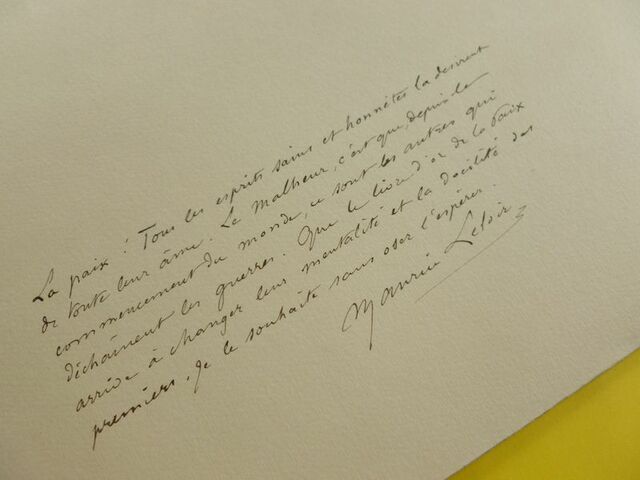 La paix ! Tous les esprits sains et honnêtes la désirent
de toute leur âme. Le Malheur, c'est que, depuis le
commencement du monde, ce sont les autres qui
déchaînent les guerres. Que le livre d'or de la Paix
arrive à changer leur mentalité et la docilité des
premiers. Je le souhaite sans oser l'espérer.
Maurice Leloir